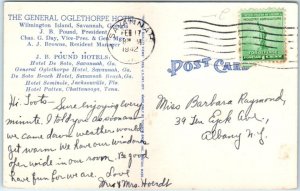 THE GENERAL OGLETHORPE HOTEL
Wilmington Island, Savannah, Ga.
J. B. Pound, President
Chas. G. Day, Vice-Pres. &
A. J. Browne, Resident Manager
J. B. POUND HOTELS:
Hotel De Soto, Savannah, Ga.
General Oglethorpe Hotel, Savannah, Ga.
De Soto Beach Hotel, Savannah Beach, Ga.
Hotel Seminole, Jacksonville, Fla.
Hotel Patten, Chattanooga, Tenn.
SAVANNAH
FEB 17
1942
POST CARD
Hi Toots – Sure enjoying every
minute. I told you as soon as
we came down weather would
get warm. We have our windows
open wide in our room. Be good
have fun for we are. Love
Mrs & Mrs. Hoerdt
Miss Barbara Raymond,
39 Ten Eyck Ave,
Albany N.Y.